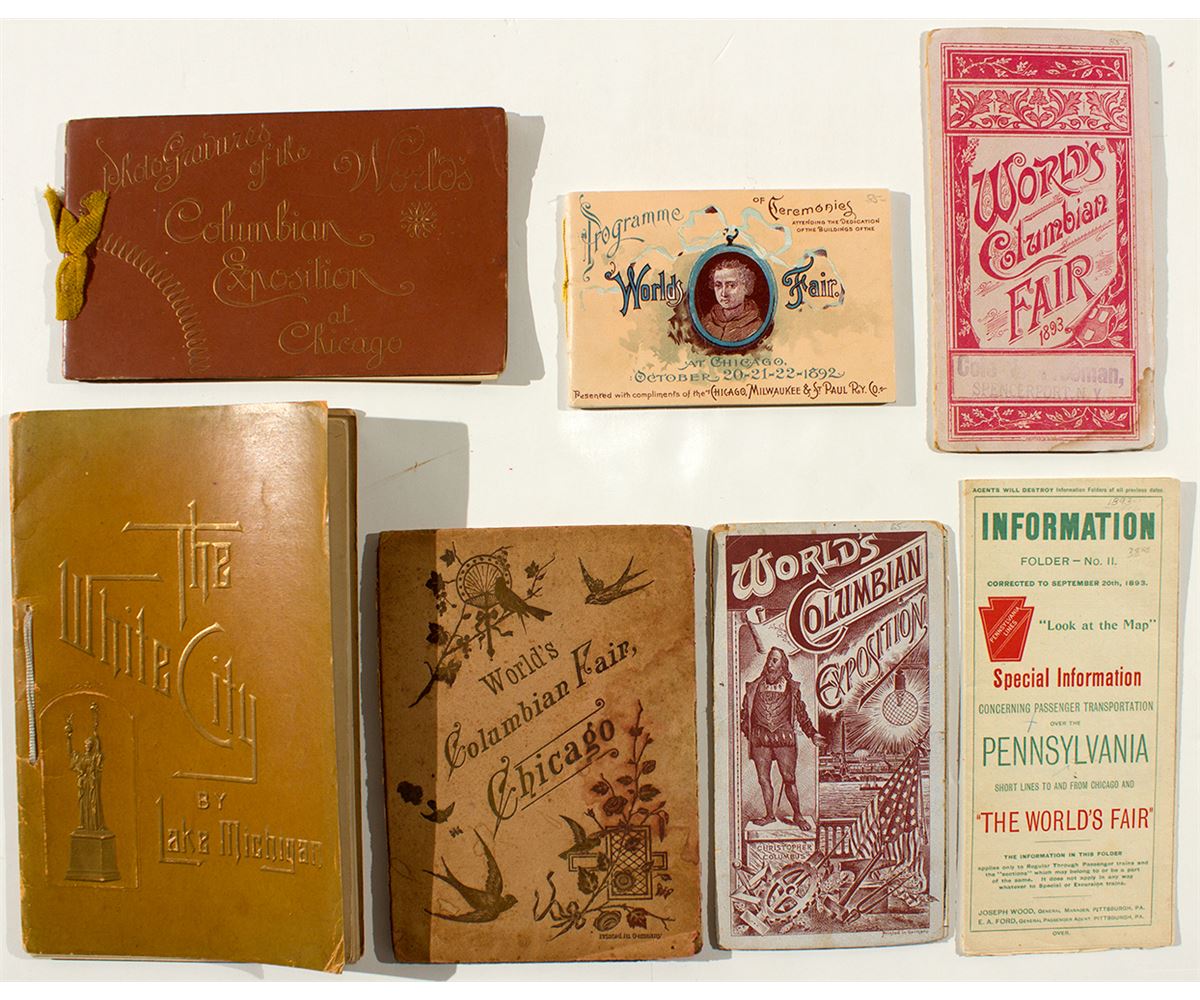 PhotoGravures
of the
World's
Columbian
Exposition
at
Chicago
Programme
OF Ceremonies
ATTENDING THE DEDICATION
OF THE BUILDINGS OF THE
World's Fair.
AT CHICAGO.
OCTOBER 20-21-22-1892
Presented with compliments of the CHICAGO, MILWAUKEE & ST PAUL RY. CO.
85-
85-
WORLD'S
Columbian
FAIR
1893
SPENCERPORT
The
White
City
BY
Lake Michigan
World's
Columbian Fair,
Chicago
Printed in Germany
65-
WORLD'S
COLUMBIAN
EXPOSITION
CHRISTOPHER
COLUMBUS
Printed in Germany
AGENTS WILL DESTROY Information Folders of all previous dates.
1893
INFORMATION
FOLDER - No. 11.
CORRECTED TO SEPTEMBER 20th, 1893.
PENNSYLVANIA
LINES
"Look at the Map"
Special Information
CONCERNING PASSENGER TRANSPORTATION
OVER THE
PENNSYLVANIA
SHORT LINES TO AND FROM CHICAGO AND
"THE WORLD'S FAIR"
THE INFORMATION IN THIS FOLDER
applies only to Regular Through Passenger trains and
the "sections" which may belong to or be a part
of the same. It does not apply in any way
whatever to Special or Excursion trains.
JOSEPH WOOD, GENERAL MANAGER, PITTSBURGH, PA.
E. A. FORD, GENERAL PASSENGER AGENT, PITTSBURGH, PA.
OVER.